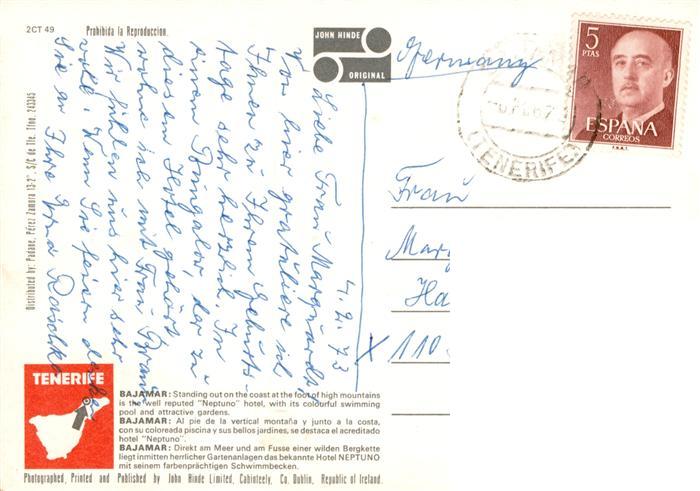 2CT 49
Prohibida la Reproduccion.
JOHN HINDE
ORIGINAL
Germany
5
PTAS
ESPAÑA
CORREOS
(TENERIFE)
4. 2. 73
Liebe Frau Marquardt,
Von hier gratuliere ich
Ihnen zu Ihrem Geburts-
tage sehr herzlich. In
einem Bungalow, der zu
diesem Hotel gehört,
wohne ich mit Frau
Wir fühlen uns hier sehr
wohl. Wenn Sie feiern
Sie an Ihre Erna
Frau
Mar
Ha
X 110
Distributed by: Padane, Pérez Zamora 13-2°. S/C de Tfe. Tfno. 243345
TENERIFE
BAJAMAR: Standing out on the coast at the foot of high mountains
is the well reputed "Neptuno" hotel, with its colourful swimming
pool and attractive gardens.
BAJAMAR: Al pie de la vertical montaña y junto a la costa,
con su coloreada piscina y sus bellos jardines, se destaca el acreditado
hotel "Neptuno".
BAJAMAR: Direkt am Meer und am Fusse einer wilden Bergkette
liegt inmitten herrlicher Gartenanlagen das bekannte Hotel NEPTUNO
mit seinem farbenprächtigen Schwimmbecken.
Photographed, Printed and Published by John Hinde Limited, Cabinteely, Co. Dublin, Republic of Ireland.